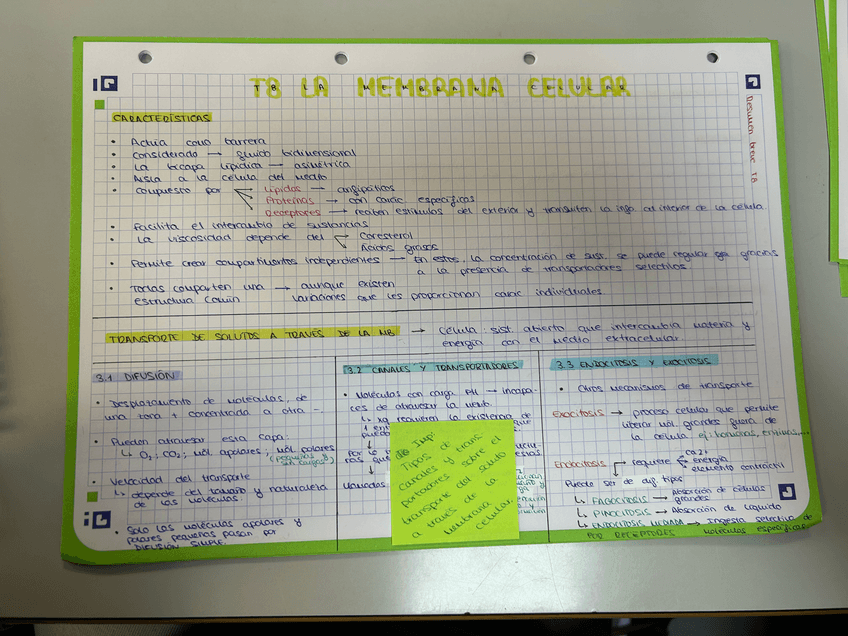 T8 LA MEMBRANA CELULAR
Resumen breve T8
CARACTERÍSTICAS
• Actúa como barrera
• Considerado → fluido bidimensional
• La bicapa lipídica → asimétrica
• Aísla a la célula del medio
• Compuesto por Lípidos → anfipáticos
Proteínas → con caract. específicas
Receptores → reciben estímulos del exterior y transmiten la info al interior de la célula.
• Facilita el intercambio de sustancias
• La viscosidad depende del Coresterol
Ácidos grasos
• Permite crear compartimentos independientes → En estos, la concentración de sust. se puede regular gracias
a la presencia de transportadores selectivos
• Todas comparten una → aunque existen
estructura común variaciones que les proporcionan carac individuales.
TRANSPORTE DE SOLUTOS A TRAVÉS DE LA MB → Célula: sist. abierto que intercambia materia y
energía con el medio extracelular
3.1 DIFUSIÓN
• Desplazamiento de moléculas, de
una zona + concentrada a otra -.
• Pueden atravesar esta capa:
↳ O2, CO2, mol. apolares, mol. polares
(pequeñas y
sin cargas)
• Velocidad del transporte
↳ depende del tamaño y naturaleza
de las moléculas.
• Solo las moléculas apolares y
polares pequeñas pasan por
DIFUSIÓN SIMPLE.
3.2 CANALES Y TRANSPORTADORES
• Moléculas con carga → incapa-
ces de atravesar la memb.
↳ requieren la existencia de
que
por lo
ras que
llamadas
Imp:
Tipos de
canales y trans-
portadores sobre el
transporte del soluto
a través de la
membrana
celular.
3.3 ENDOCITOSIS Y EXOCITOSIS
• Otros mecanismos de transporte
EXOCITOSIS → proceso celular que permite
liberar mol. grandes fuera de
la célula ej: hormonas, enzimas,...
ENDOCITOSIS requiere ca2+
energía
elemento contráctil
Puede ser de dif. tipos
↳ FAGOCITOSIS → Absorción de células
grandes
↳ PINOCITOSIS → Absorción de líquido
↳ ENDOCITOSIS MEDIADA → Ingesta selectiva de
POR RECEPTORES moléculas específicas